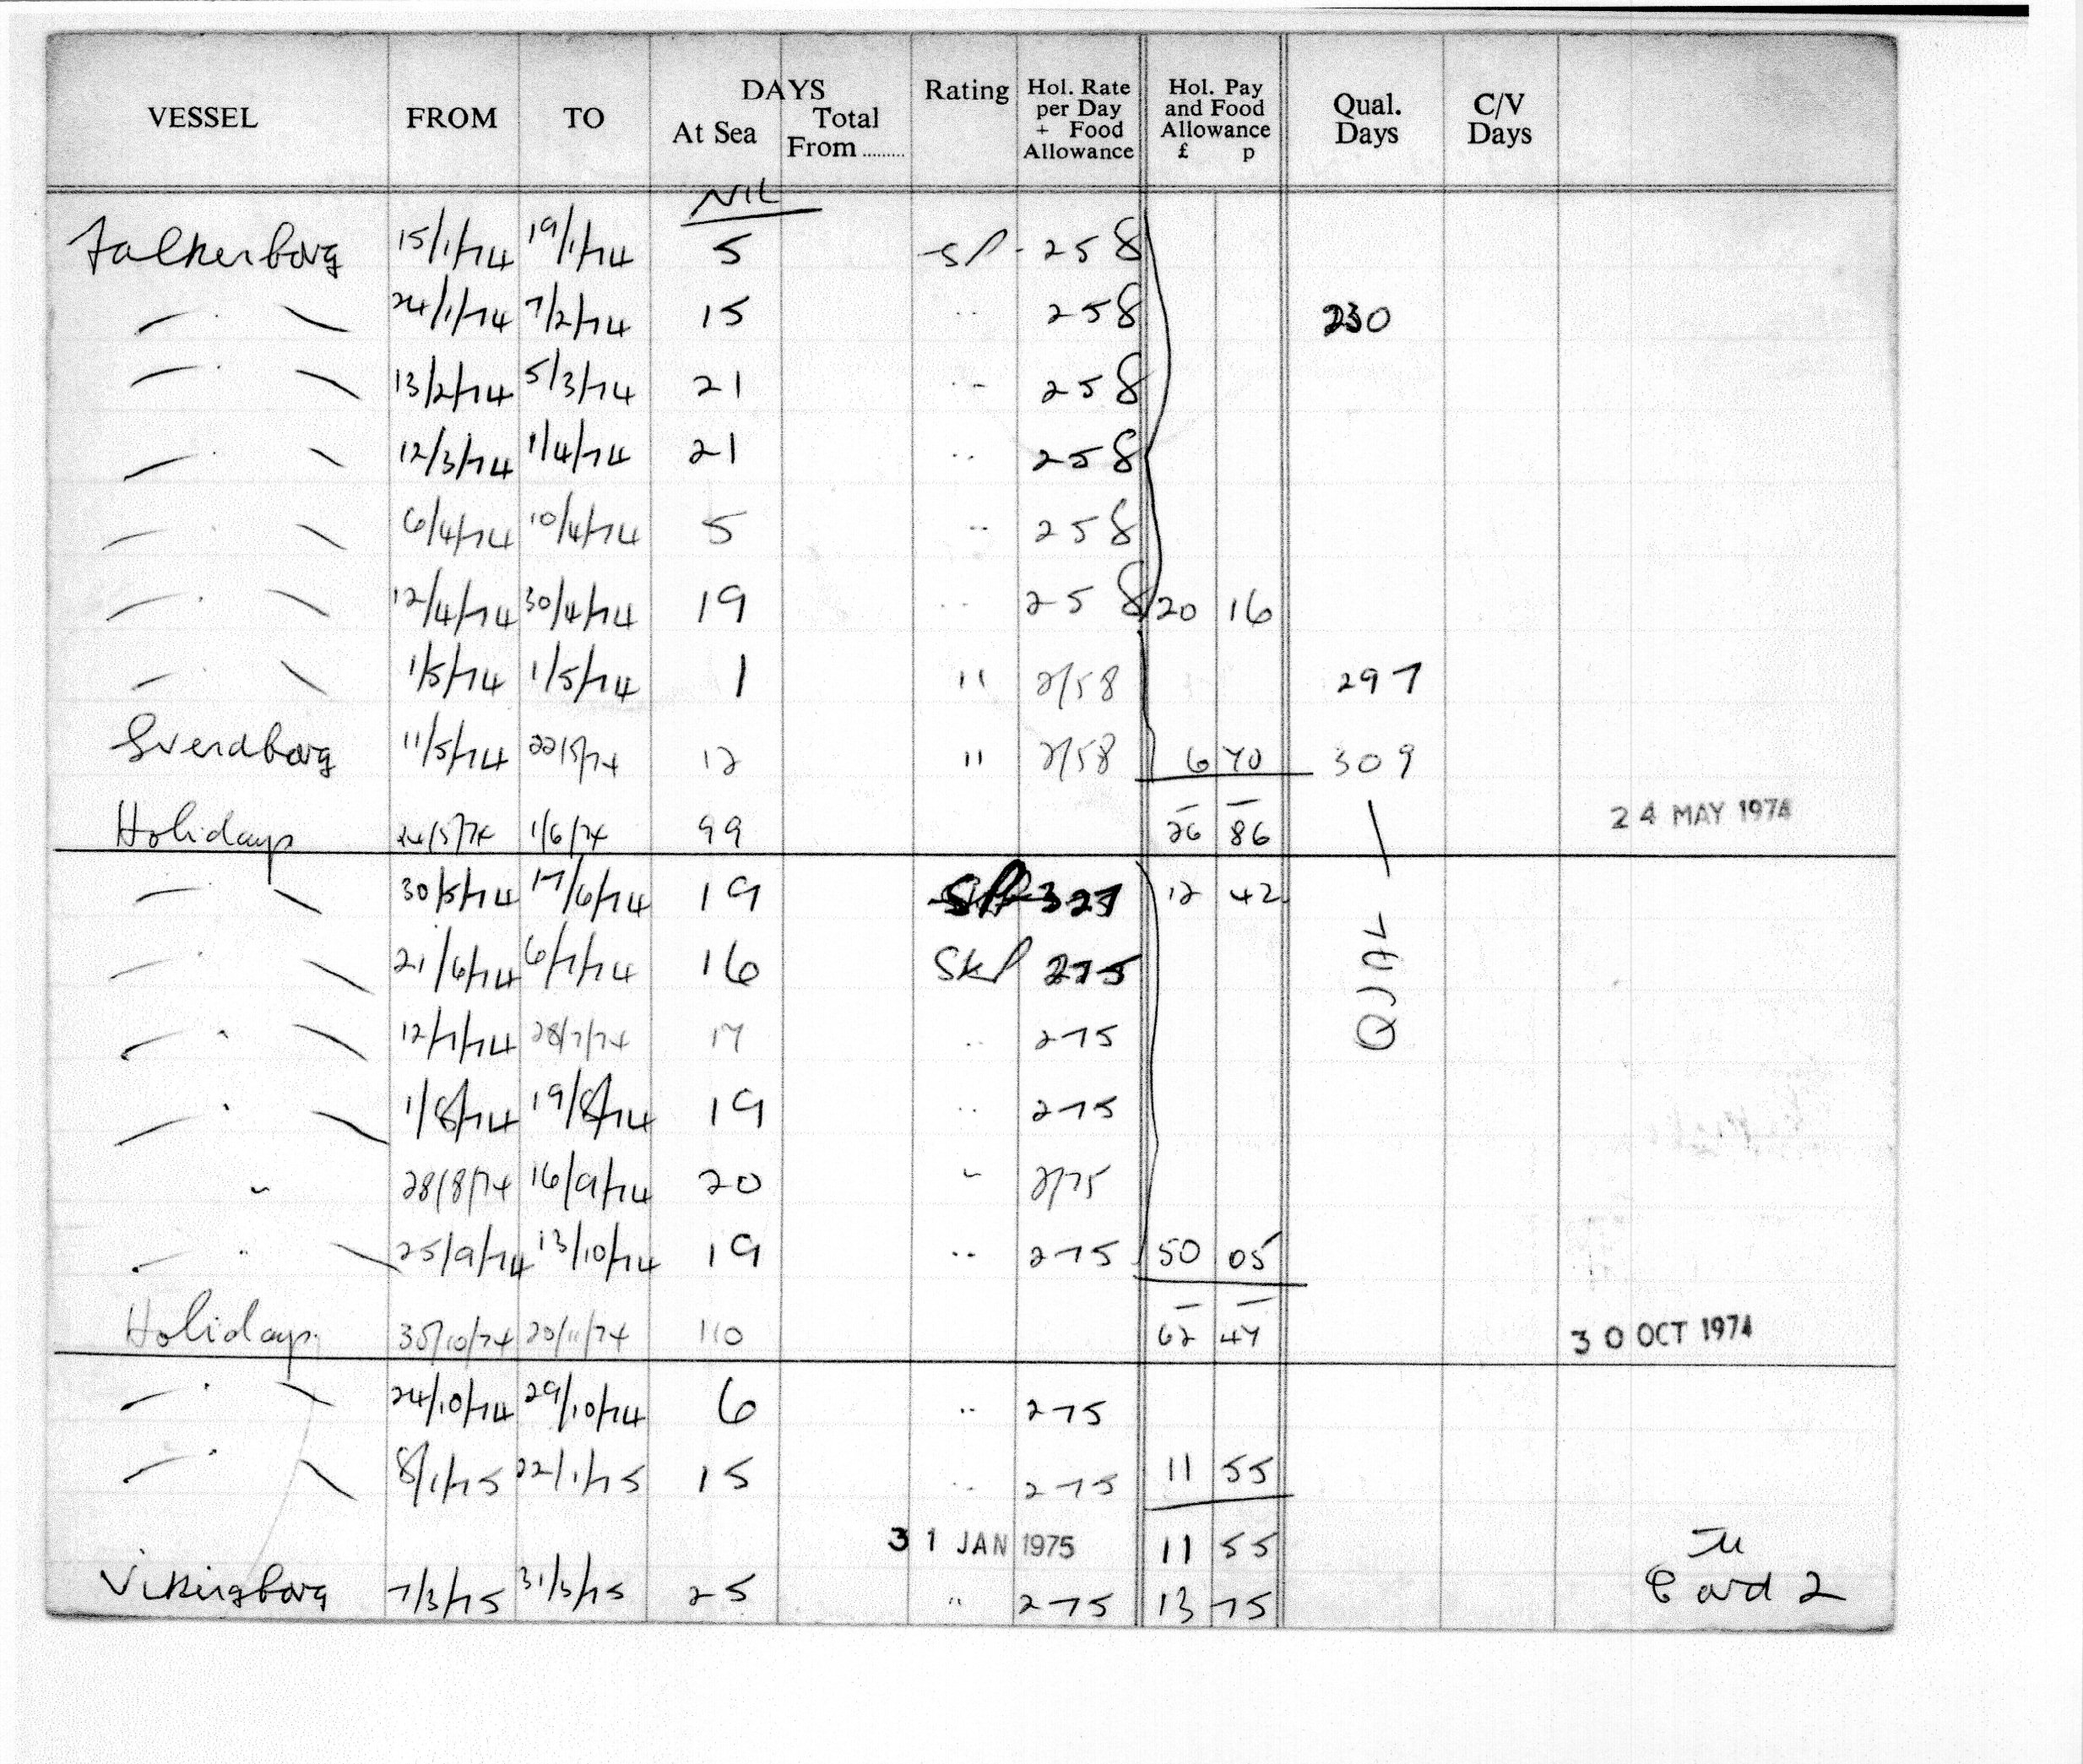 VESSEL FROM TO DAYS At Sea Total From ......... Rating Hol. Rate per Day + Food Allowance Hol. Pay and Food Allowance £ p Qual. Days C/V Days
NIL
Falkenborg 15/1/74 19/1/74 5 Sp 258
— " — 24/1/74 7/2/74 15 " 258 230
— " — 13/2/74 5/3/74 21 " 258
— " — 12/3/74 1/4/74 21 " 258
— " — 6/4/74 10/4/74 5 " 258
— " — 12/4/74 30/4/74 19 " 258 20 16
— " — 1/5/74 1/5/74 1 " 2/58 297
Sverdborg 11/5/74 22/5/74 12 " 2/58 6 70 309
Holidays 24/5/74 1/6/74 99 26 86 24 MAY 1974
— " — 30/5/74 17/6/74 19 327 12 42
— " — 21/6/74 6/7/74 16 Skp 275
— " — 12/7/74 28/7/74 17 " 275
— " — 1/8/74 19/8/74 19 " 275
" 28/8/74 16/9/74 20 " 2/75
— " — 25/9/74 13/10/74 19 " 275 50 05
QUAL
Holidays 30/10/74 20/11/74 110 62 47 30 OCT 1974
— " — 24/10/74 29/10/74 6 " 275
— " — 8/1/75 22/1/75 15 " 275 11 55
31 JAN 1975 11 55
Vikingborg 7/3/75 31/3/75 25 " 275 13 75 Card 2